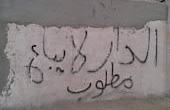 الدار لا يباع
مطلوب